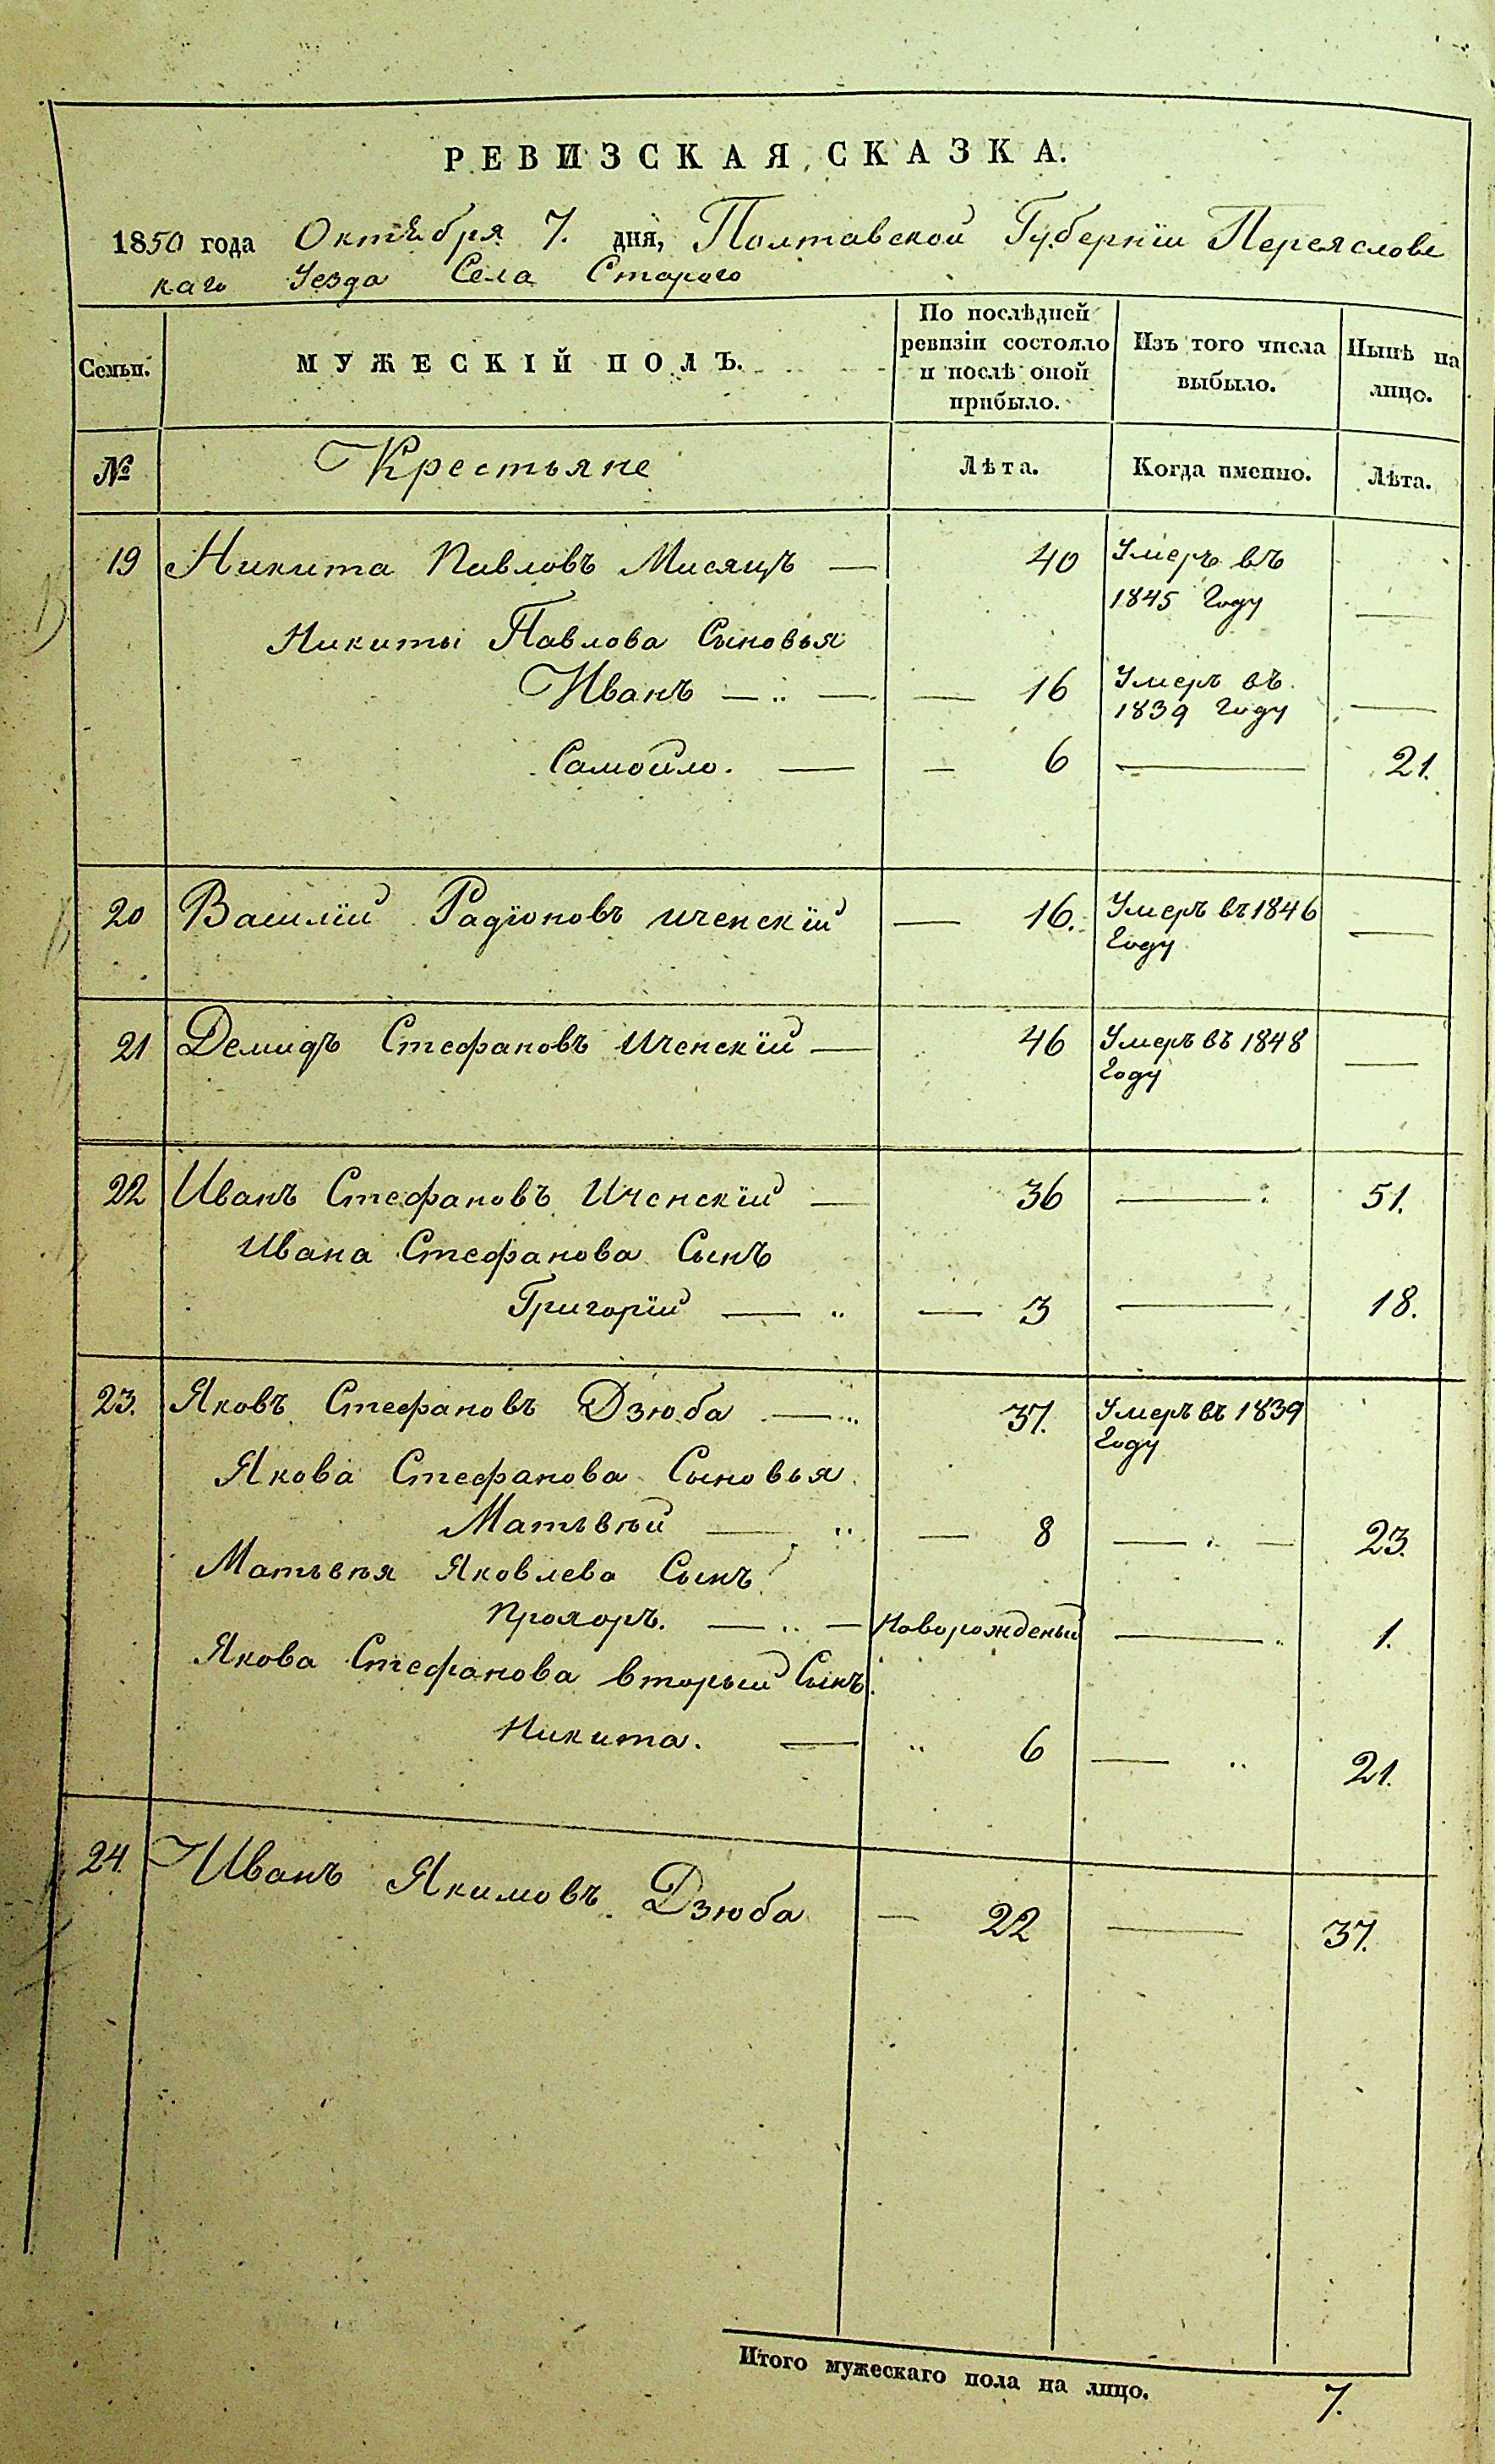 РЕВИЗСКАЯ СКАЗКА.
1850 года Октября 7. дня, Полтавской Губернїи Переяславс
каго Уезда Села Старого
Семьи.
МУЖЕСКІЙ ПОЛЪ.
По послѣдней ревизіи состояло и послѣ оной прибыло.
Изъ того числа выбыло.
Нынѣ на лицо.
№ Крестьяне Лѣта. Когда именно. Лѣта.
19 Никита Павловъ Мисяцъ — 40 Умеръ въ
1845 году —
Никиты Павлова Сыновья
Иванъ — — 16 Умеръ въ
1839 году —
Самойло. — — 6 — 21.
20 Василїй Радїоновъ Иченскїй — 16. Умеръ въ 1846
году —
21 Демидъ Стефановъ Иченскїй — 46 Умеръ въ 1848
году —
22 Иванъ Стефановъ Иченскїй — 36 — 51.
Ивана Стефанова Сынъ
Григорїй — — 3 — 18.
23. Яковъ Стефановъ Дзюба — 37. Умеръ въ 1839
году
Якова Стефанова Сыновья
Матвѣй — — 8 — — 23.
Матвѣя Яковлева Сынъ
Прохоръ. — — Новорожденый — 1.
Якова Стефанова вторый Сынъ
Никита. — 6 — 21.
24. Иванъ Якимовъ Дзюба — 22 — 37.
Итого мужескаго пола на лицо. 7.